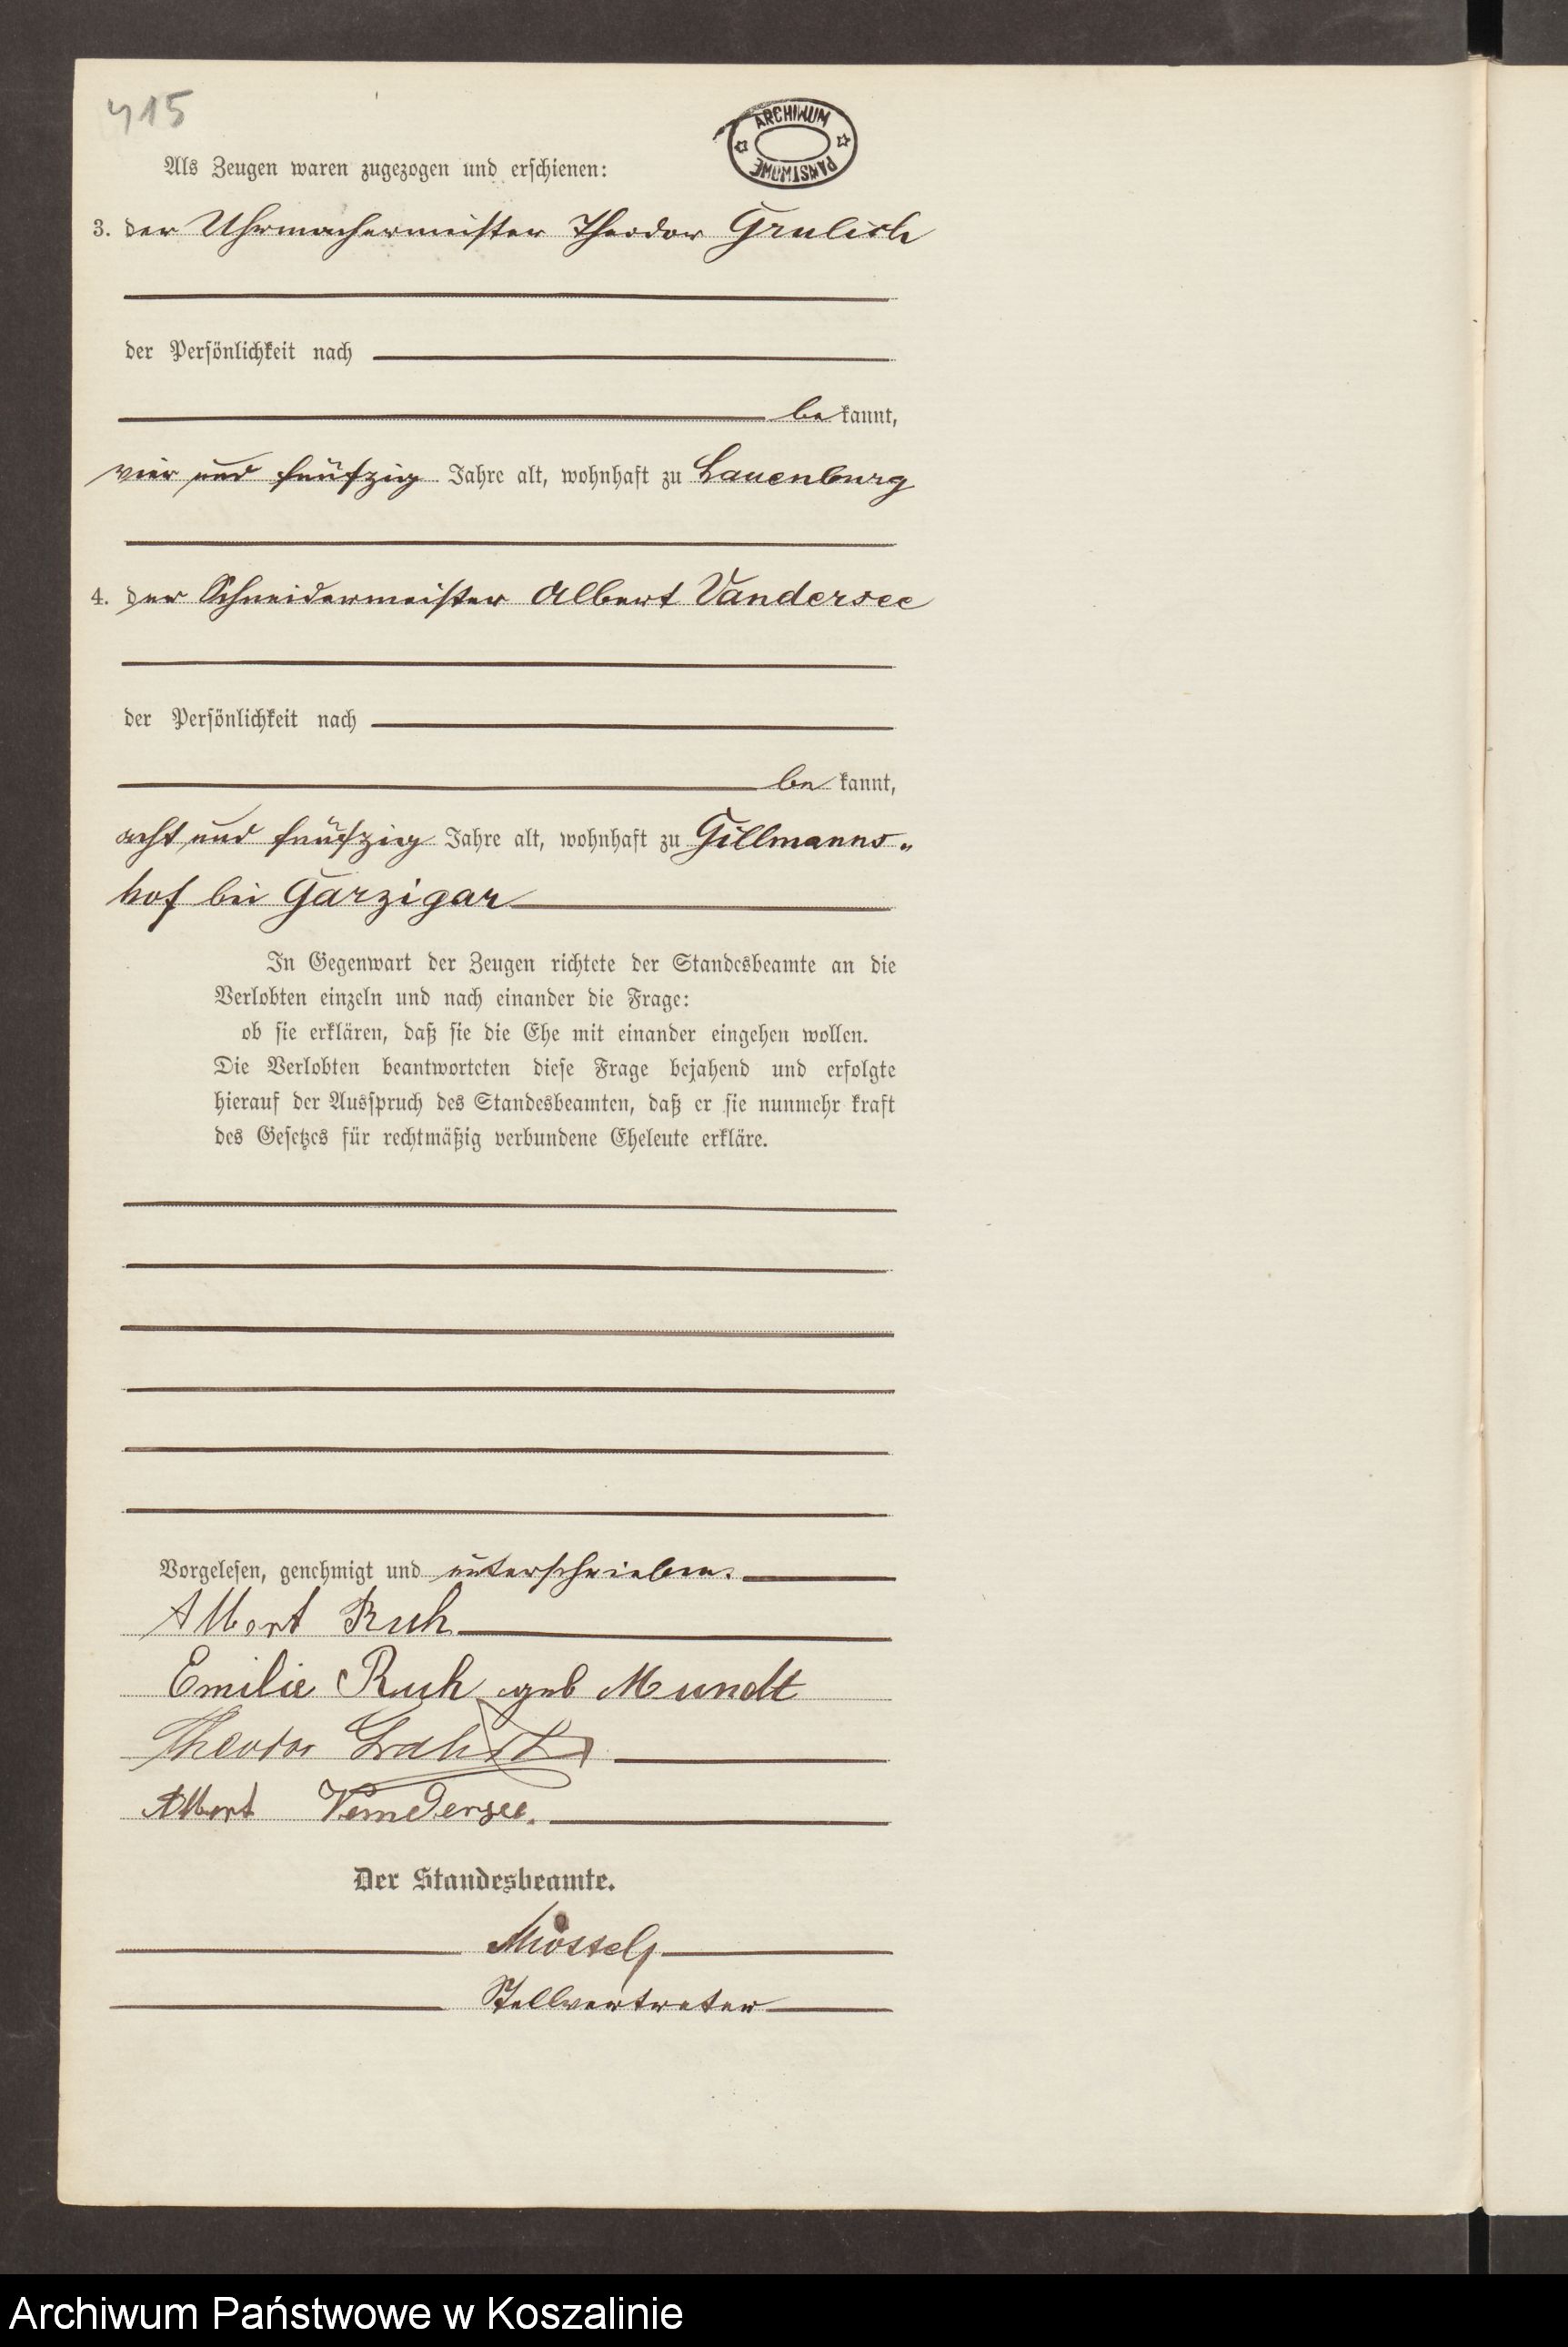 415
ARCHIWUM PAŃSTWOWE
Als Zeugen waren zugezogen und erschienen:
3. der Uhrmachermeister Theodor Grulich
der Persönlichkeit nach
bekannt,
vier und fünfzig Jahre alt, wohnhaft zu Lauenburg
4. der Schneidermeister Albert Vandersee
der Persönlichkeit nach
bekannt,
acht und fünfzig Jahre alt, wohnhaft zu Gillmanns-
hof bei Garzigar
In Gegenwart der Zeugen richtete der Standesbeamte an die
Verlobten einzeln und nach einander die Frage:
ob sie erklären, daß sie die Ehe mit einander eingehen wollen.
Die Verlobten beantworteten diese Frage bejahend und erfolgte
hierauf der Ausspruch des Standesbeamten, daß er sie nunmehr kraft
des Gesetzes für rechtmäßig verbundene Eheleute erkläre.
Vorgelesen, genehmigt und unterschrieben.
Albert Ruh
Emilie Ruh geb Mundt
Theodor
Albert Vandersee.
Der Standesbeamte.
Stellvertreter
Archiwum Państwowe w Koszalinie